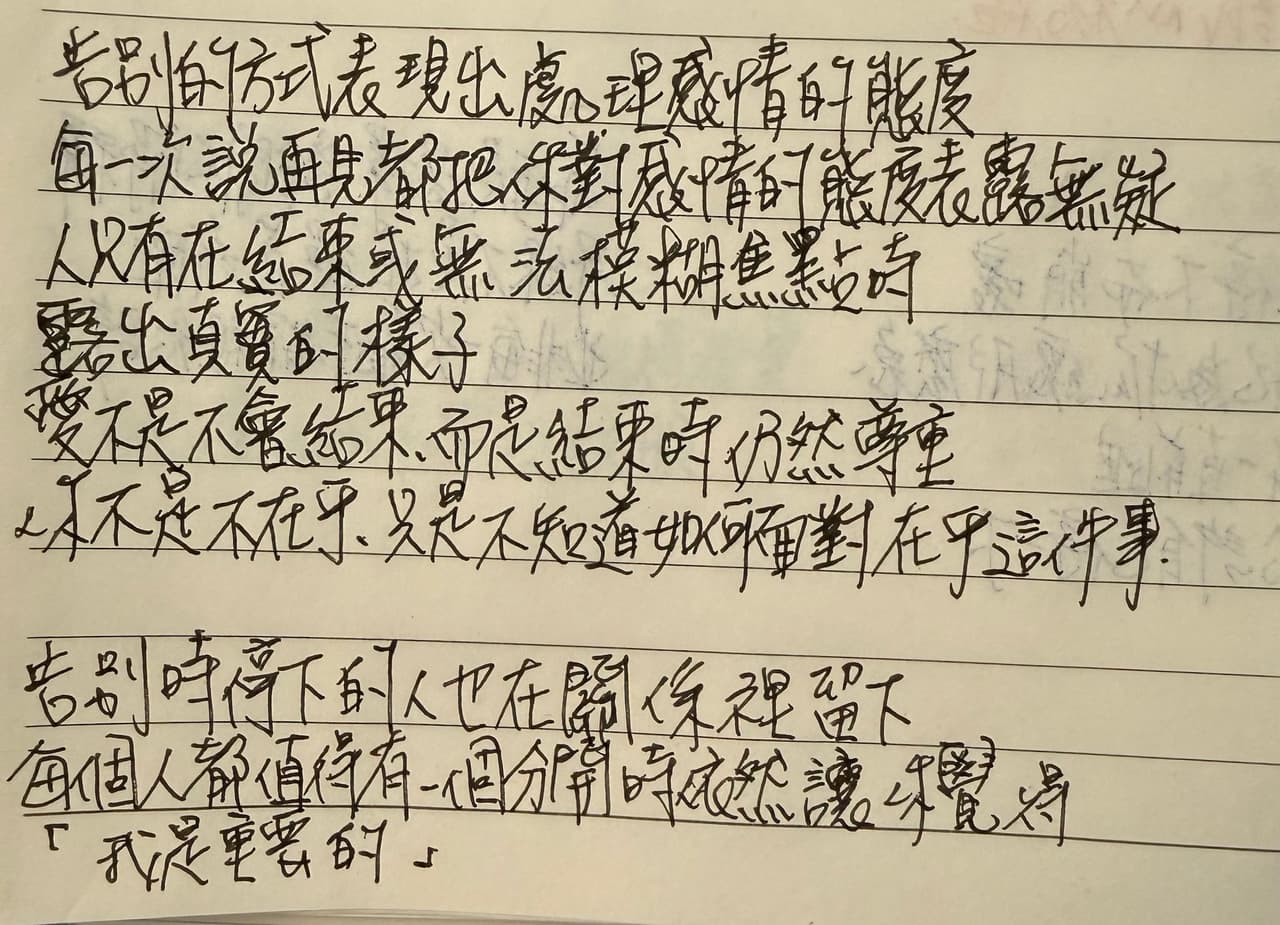 告別的方式表現出處理感情的態度
每一次說再見都把你對感情的態度表露無疑
人只有在結束或無法模糊焦點時
露出真實的樣子
愛不是不會結束、而是結束時仍然尊重
你不是不在乎、只是不知道如何面對在乎這件事.
告別時停下的人也在關係裡留下
每個人都值得有一個分開時依然讓你覺得
「我是重要的」